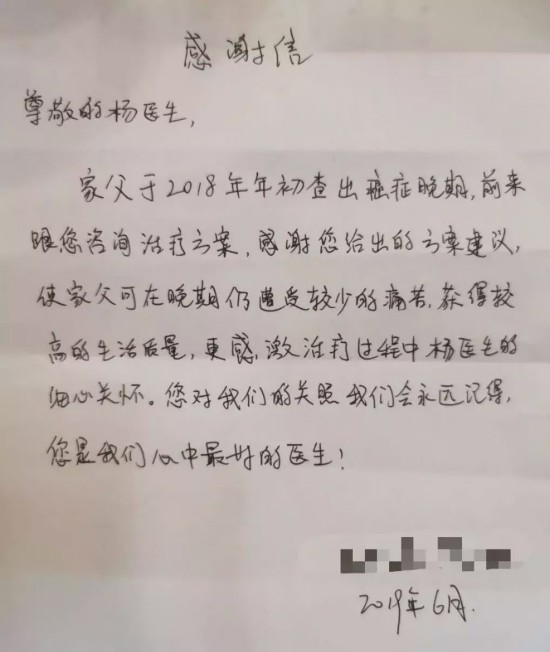 感谢信
尊敬的杨医生,
家父于2018年年初查出癌症晚期,前来
跟您咨询治疗方案,感谢您给出的方案建议,
使家父可在晚期仍遭受较少的痛苦,获得较
高的生活质量,更感激治疗过程中杨医生的
细心关怀。您对我们的关照我们会永远记得,
您是我们心中最好的医生!
2019年6月.